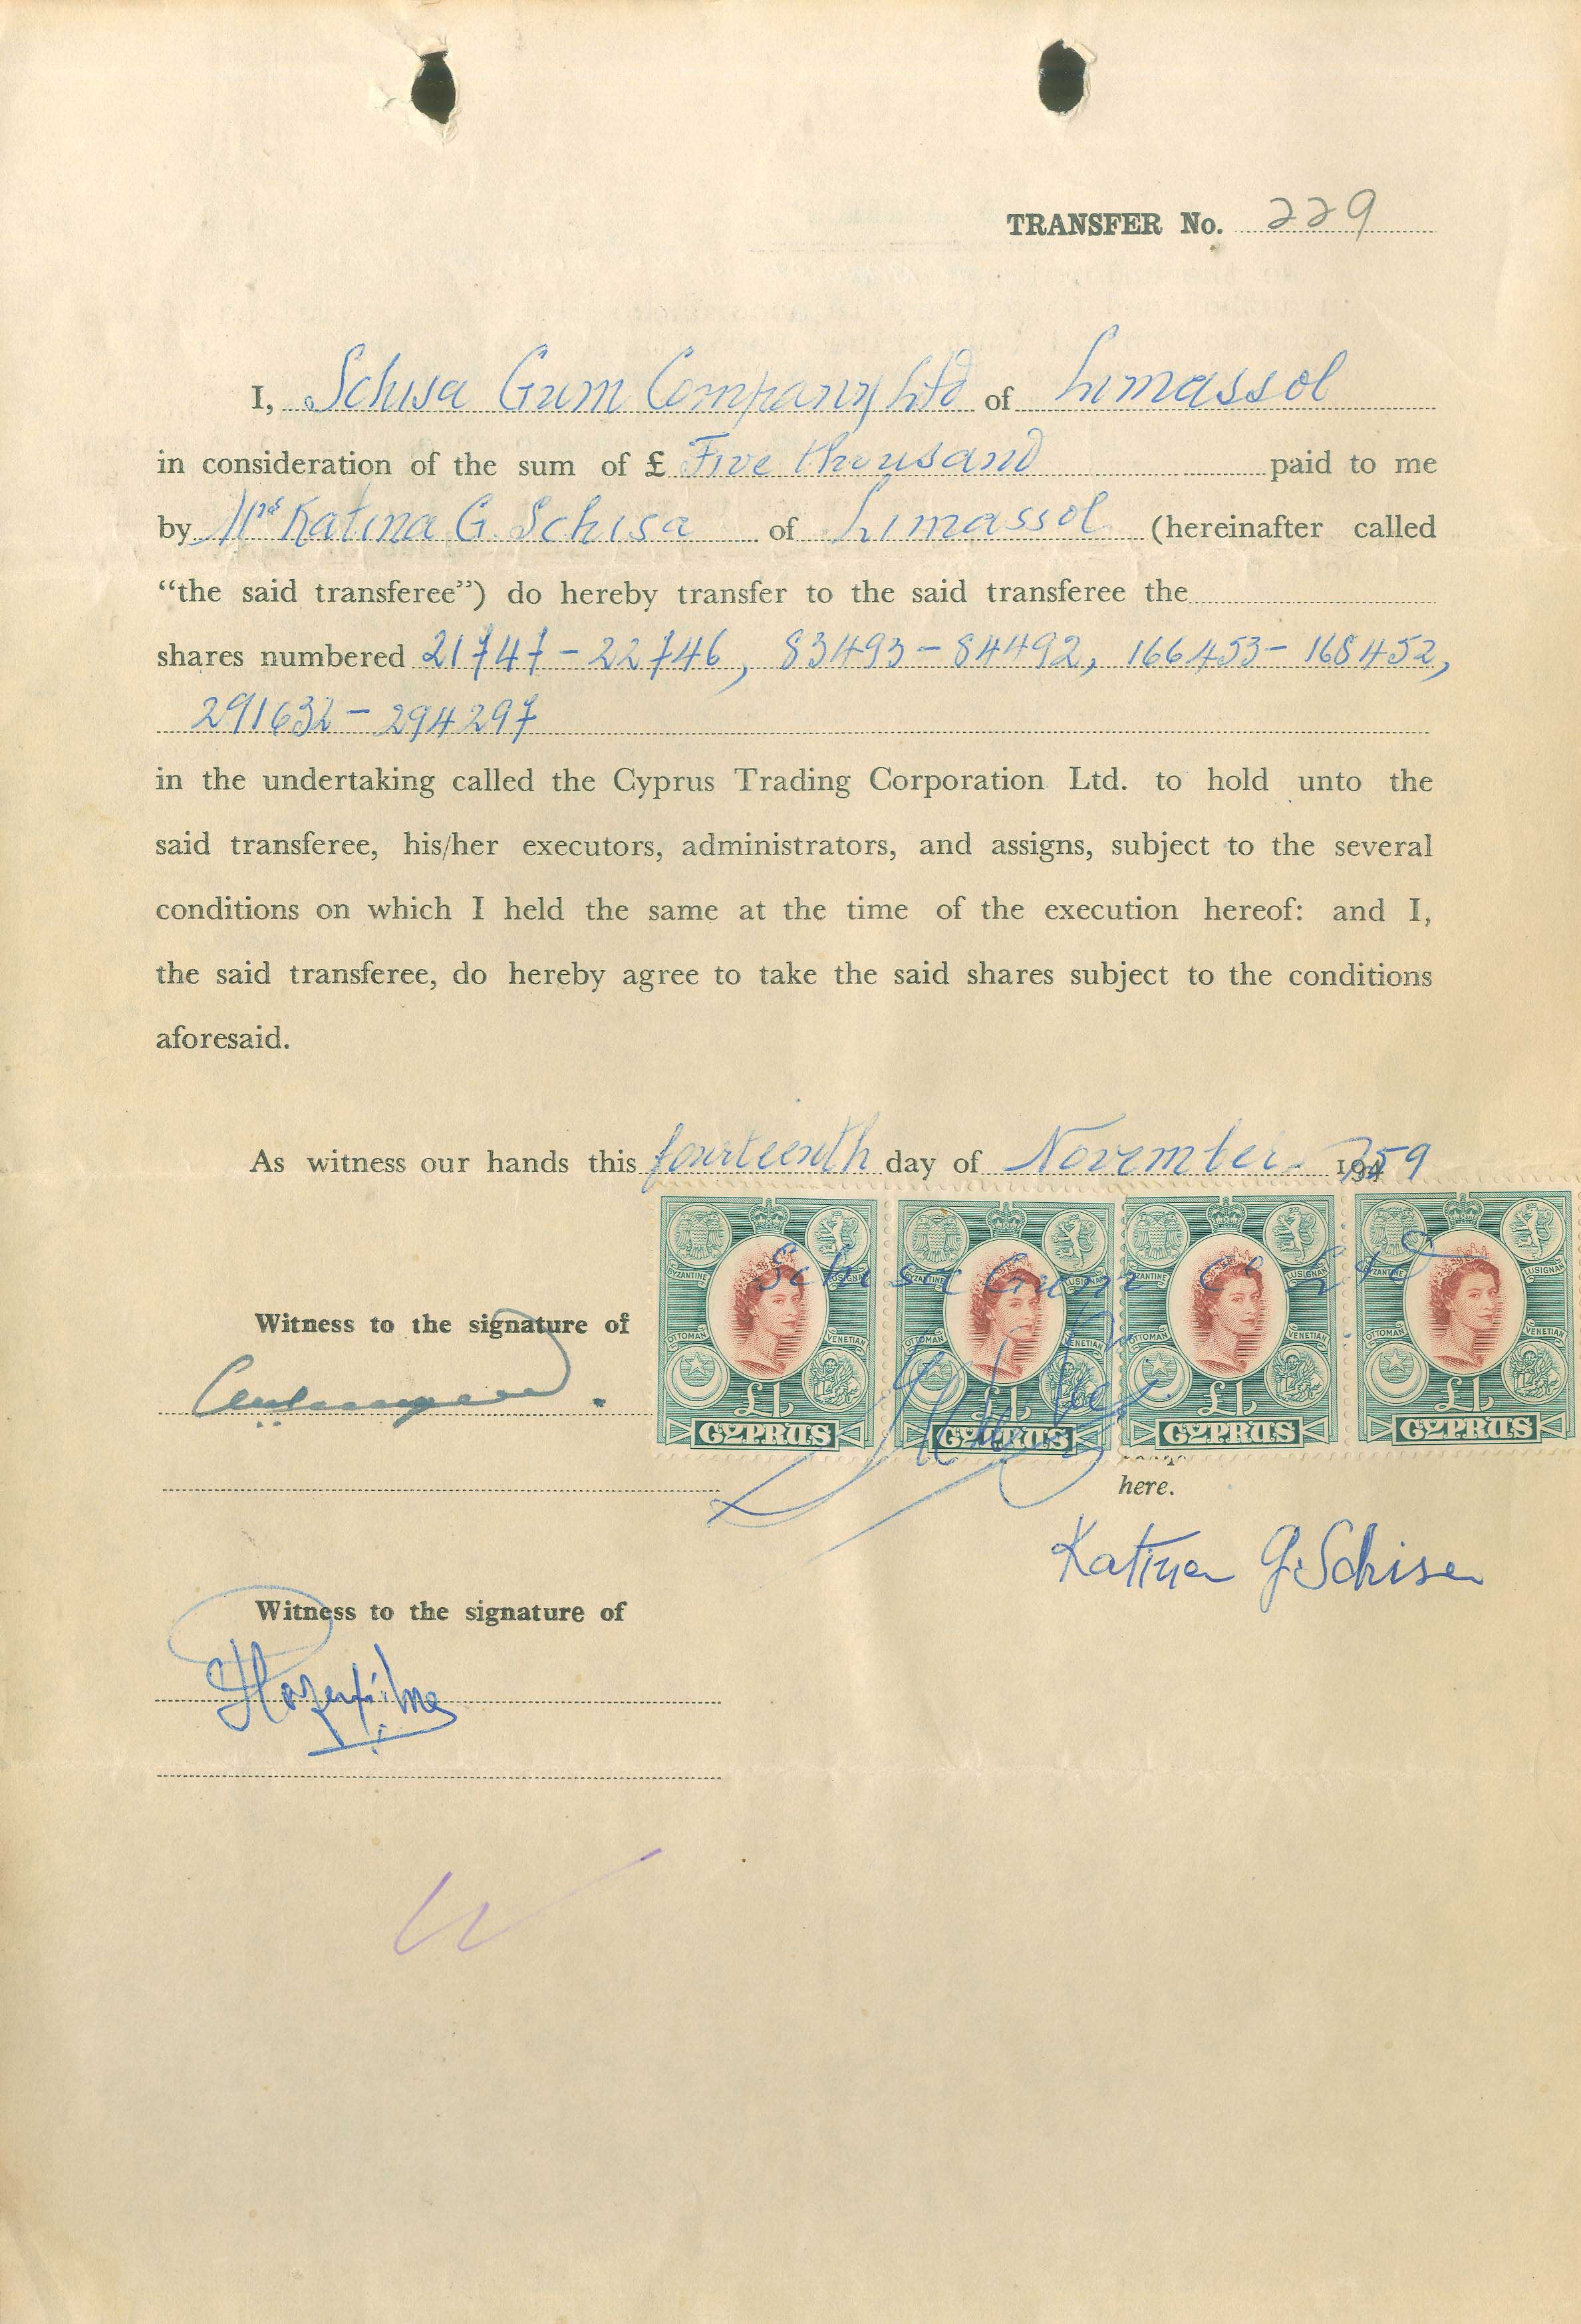 TRANSFER No. 229
I, Schisa Gum Company Ltd of Limassol
in consideration of the sum of £ Five thousand paid to me
by Mrs Katina G. Schisa of Limassol (hereinafter called
“the said transferee”) do hereby transfer to the said transferee the
shares numbered 21747 – 22746, 83493 – 84492, 166453 – 168452,
291632 – 294297
in the undertaking called the Cyprus Trading Corporation Ltd. to hold unto the
said transferee, his/her executors, administrators, and assigns, subject to the several
conditions on which I held the same at the time of the execution hereof: and I,
the said transferee, do hereby agree to take the said shares subject to the conditions
aforesaid.
As witness our hands this fourteenth day of November 1959
BYZANTINE LUSIGNAN BYZANTINE LUSIGNAN BYZANTINE LUSIGNAN BYZANTINE LUSIGNAN
Schisa Gum Co Ltd
Witness to the signature of
OTTOMAN VENETIAN OTTOMAN VENETIAN OTTOMAN VENETIAN OTTOMAN VENETIAN
£1 £1 £1 £1
CYPRUS CYPRUS CYPRUS CYPRUS
here.
Katina G. Schisa
Witness to the signature of